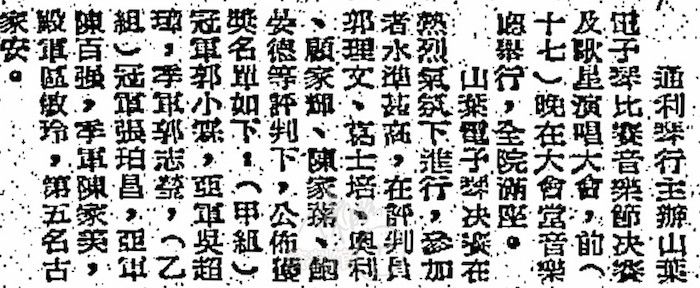 通利琴行主辦山葉
電子琴比賽音樂節決賽
及歌星演唱大會，前（
十七）晚在大會堂音樂
廳舉行，全院滿座。
山葉電子琴决賽在
熱烈氣氛下進行，參加
者水準甚高，在評判員
郭理文、葛士培、奧利
、顧家輝、陳家、鮑
安德等評判下，公佈優
獎名單如下：（甲組）
冠軍郭小霖，亞軍吳超
，季軍郭志，（乙
組）冠軍張珀昌，亞軍
陳百强，季軍陳家美，
殿軍區敏玲，第五名古
家安。